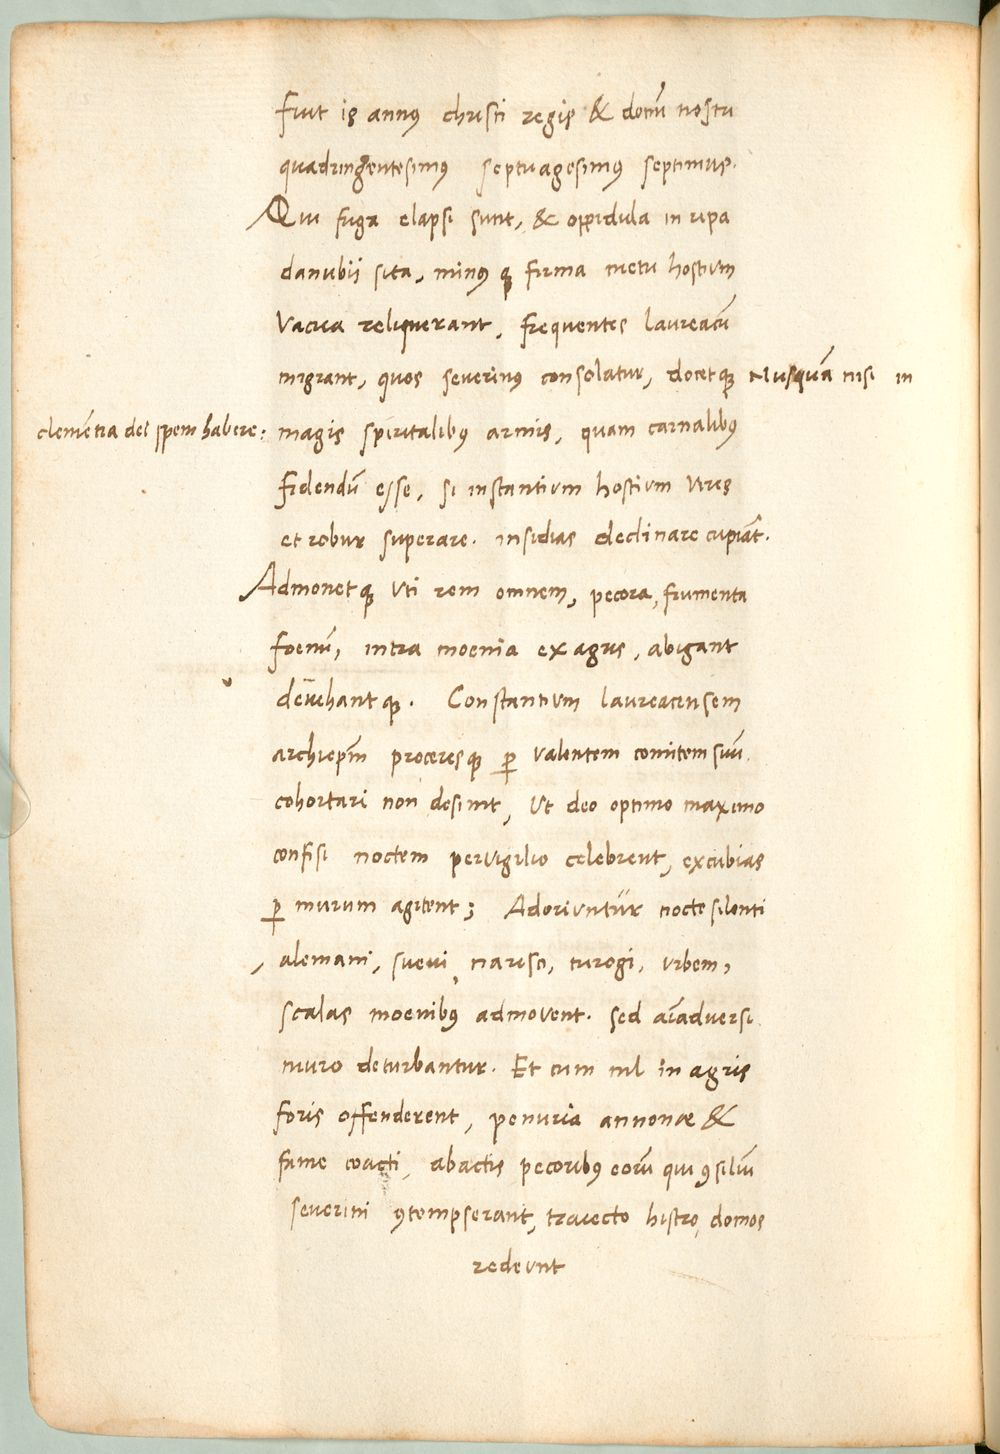 Fuit is annus christi regis & domĩ nostri
quadringentesimus septuagesimus septimus.
Qui fuga elapsi sunt, & oppidula in ripa
danubii sita, minusqȝ firma metu hostium
Vacua reliquerant, frequentes laureacũ
migrant, quos severinus consolatur, docetqȝ Nusquã nisi in
clemẽtia dei spem habere: magis spiritalibus armis, quam carnalibus
fidendũ esse, si instantium hostium vires
et robur superare. insidias declinare cupiãt.
Admonetqȝ Uti rem omnem, pecora, frumenta
foenũ, intra moenia ex agris, abigant
devehantqȝ. Constantium laureacensem
archiepm̃ proceresqȝ ꝑ valentem comitem suũ
cohortari non desinit, Ut deo optimo maximo
confisi noctem pervigilio celebrent, excubias
ꝑ murum agitent; Adoriuntur nocte silenti
alemani, suevi narisci, turogi, urbem,
scalas moenibus admovent. sed aĩadversi
muro deturbantur. Et cum nil in agris
foris offenderent, penuria annonæ &
fame coacti, abactis pecoribus eorũ qui ꝯsiliũ
severini ꝯtempserant, traiecto histro, domos
redeunt